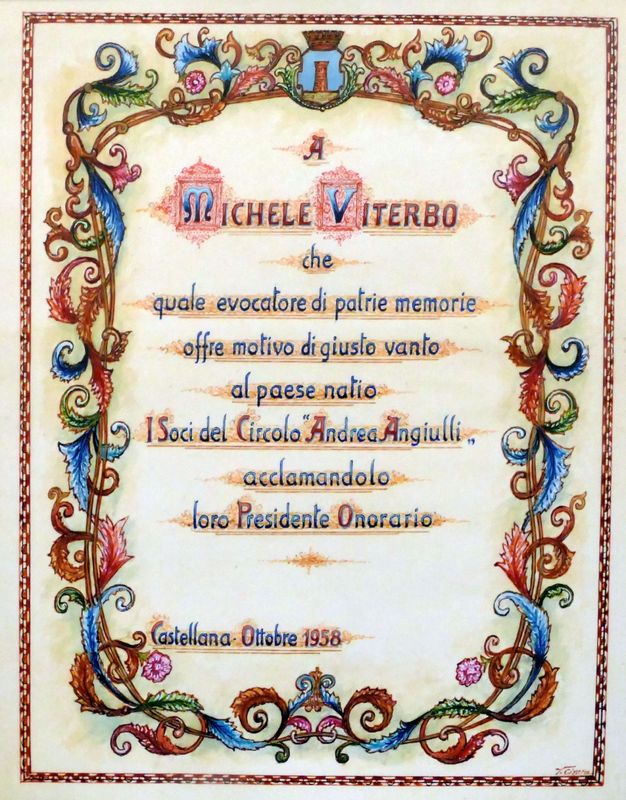 A
MICHELE VITERBO
che
quale evocatore di patrie memorie
offre motivo di giusto vanto
al paese natio
I Soci del Circolo "Andrea Angiulli„
acclamandolo
loro Presidente Onorario
Castellana - Ottobre 1958